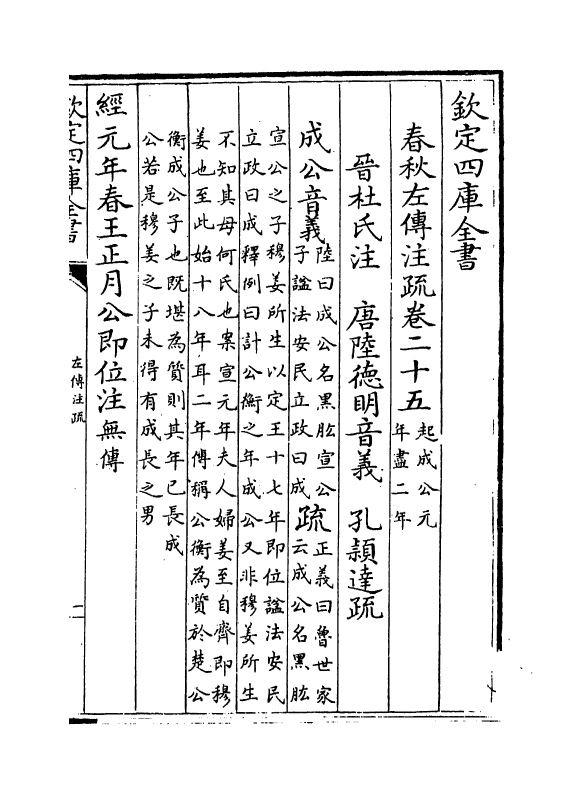 欽定四庫全書
春秋左傳注疏卷二十五
起成公元
年盡二年
晉杜氏注　唐陸德明音義　孔穎達疏
成公音義
陸曰成公名黑肱宣公
子諡法安民立政曰成
疏
正義曰魯世家
云成公名黑肱
宣公之子穆姜所生以定王十七年即位諡法安民
立政曰成釋例曰計公衡之年成公又非穆姜所生
不知其母何氏也案宣元年夫人婦姜至自齊即穆
姜也至此始十八年耳二年傳稱公衡為質於楚公
衡成公子也既堪為質則其年已長成
公若是穆姜之子未得有成長之男
經元年春王正月公即位注無傳
欽定四庫全書
左傳注疏
一